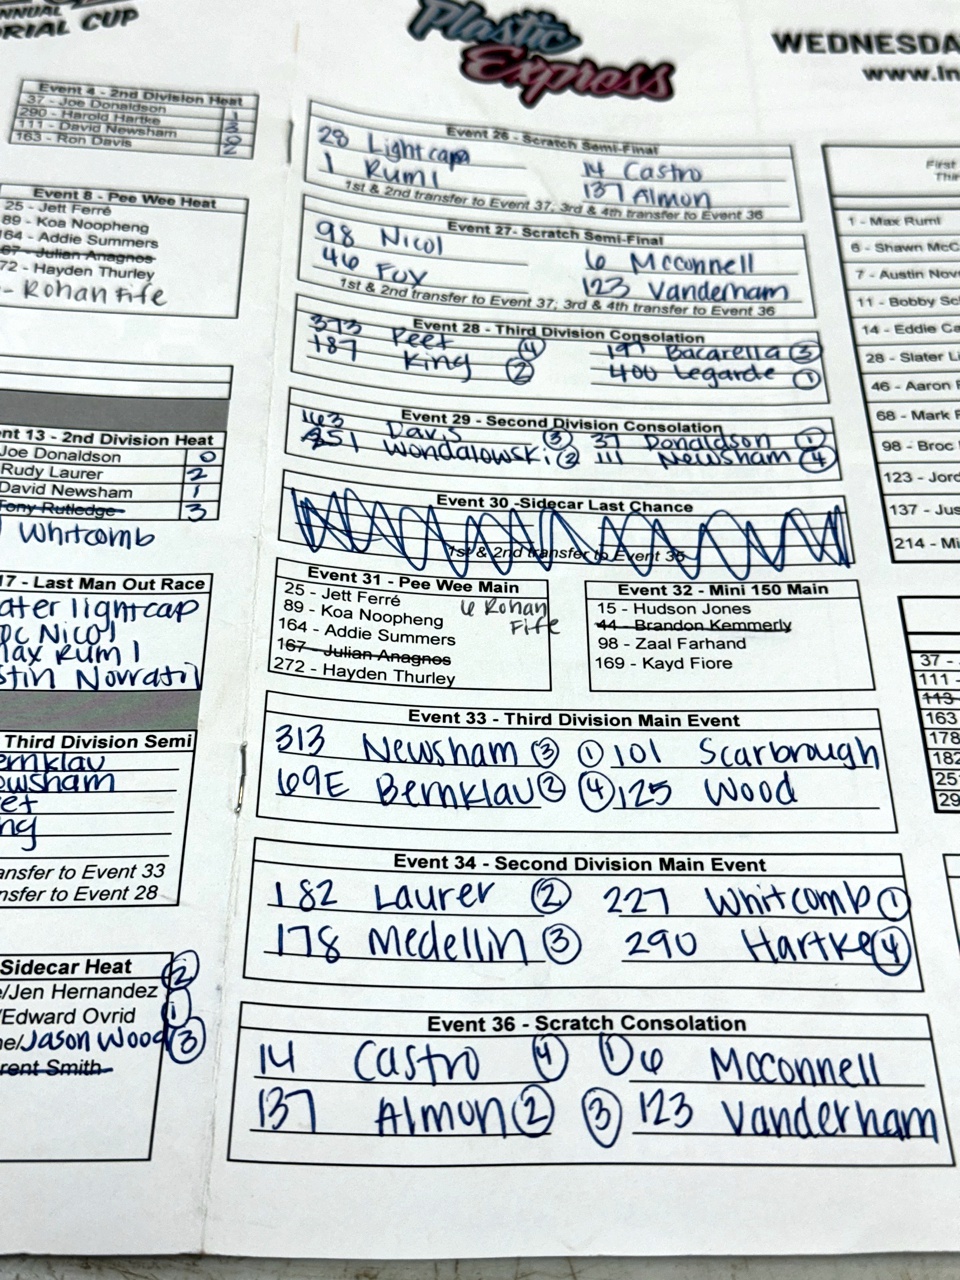 ANNUAL
ORIAL CUP
Plastic
Express
WEDNESDA
www.In
Event 4 - 2nd Division Heat
37 - Joe Donaldson 1
290 - Harold Hartke 3
111 - David Newsham 0
163 - Ron Davis 2
Event 8 - Pee Wee Heat
25 - Jett Ferré
89 - Koa Noopheng
164 - Addie Summers
67 - Julian Anagnos
72 - Hayden Thurley
- Rohan Fife
nt 13 - 2nd Division Heat
Joe Donaldson 0
Rudy Laurer 2
David Newsham 1
Tony Rutledge 3
Whitcomb
17 - Last Man Out Race
ater lightcap
oc Nicol
Max Ruml
stin Novratil
Third Division Semi
ernklau
owsham
eet
ng
ansfer to Event 33
nsfer to Event 28
Sidecar Heat 2
e/Jen Hernandez
/Edward Ovrid 1
ne/Jason Wood 3
rent Smith
Event 26 - Scratch Semi-Final
28 Lightcap 14 Castro
1 Ruml 137 Almon
1st & 2nd transfer to Event 37, 3rd & 4th transfer to Event 36
Event 27- Scratch Semi-Final
98 Nicol 6 Mcconnell
46 Fox 123 Vanderham
1st & 2nd transfer to Event 37; 3rd & 4th transfer to Event 36
Event 28 - Third Division Consolation
373 Peet 4 191 Bacarella 3
187 King 2 400 Legarde 1
Event 29 - Second Division Consolation
163 Davis 3 37 Donaldson 1
351 Wondalowski 2 111 Newsham 4
Event 30 -Sidecar Last Chance
1st & 2nd transfer to Event 35
Event 31 - Pee Wee Main
25 - Jett Ferré 6 Rohan
89 - Koa Noopheng Fife
164 - Addie Summers
167 - Julian Anagnos
272 - Hayden Thurley
Event 32 - Mini 150 Main
15 - Hudson Jones
44 - Brandon Kemmerly
98 - Zaal Farhand
169 - Kayd Fiore
Event 33 - Third Division Main Event
313 Newsham 3 1 101 Scarbrough
69E Bernklau 2 4 125 Wood
Event 34 - Second Division Main Event
182 Laurer 2 227 Whitcomb 1
178 Medellin 3 290 Hartke 4
Event 36 - Scratch Consolation
14 Castro 4 1 6 Mcconnell
137 Almon 2 3 123 Vanderham
First
Thir
1 - Max Ruml
6 - Shawn McC
7 - Austin Nov
11 - Bobby Sc
14 - Eddie Ca
28 - Slater Li
46 - Aaron F
68 - Mark F
98 - Broc
123 - Jord
137 - Jus
214 - Mi
37 -
111 -
113
163
178
182
25
29